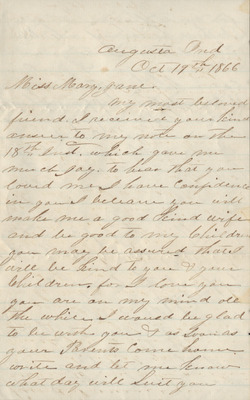 Augusta Ind
Oct 19th 1866
Miss Mary Jane.
My most beloved
friend. I received your kind
answer to my note on the
18th Inst. which gave me
much joy. to hear that you
loved me I have confidence
in you I beleave you will
make me a good kind wife
and be good to my Children
you may be assured that I
will be kind to you & your
Children. for I love you
you are on my mind all
the while I would be glad
to be with you & as soon as
your Parents come home
write and let me know
what day will suit you